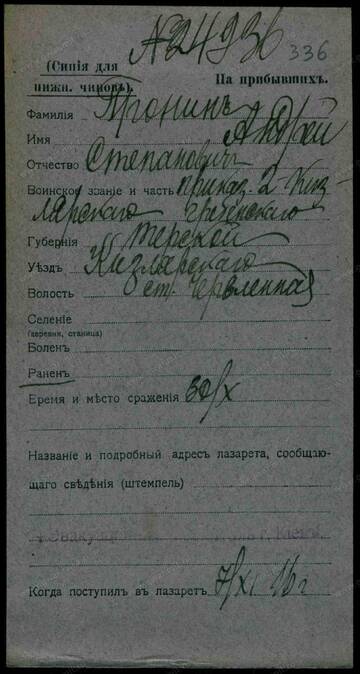 № 24936 336
(Синія для
нижн. чиновъ).
На прибывшихъ.
Фамилія Пронинъ
Имя Андрей
Отчество Степановичъ
Воинское званіе и часть приказ. 2 Киз
лярскаго гребенскаго
Губернія Терской
Уѣздъ Кизлярскаго
Волость ст. Червленная
Селеніе
(деревня, станица)
Боленъ
Раненъ
Время и мѣсто сраженія 30/X
Названіе и подробный адресъ лазарета, сообщаю-
щаго свѣдѣнія (штемпель)
г. Кіевъ
Когда поступилъ въ лазаретъ 7/XI 16 г